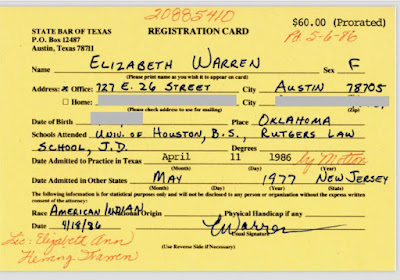 20885410
STATE BAR OF TEXAS
P.O. Box 12487
Austin, Texas 78711
REGISTRATION CARD
$60.00 (Prorated)
Pd. 5-6-86
Name ELIZABETH WARREN Sex F
(Please print name as you wish it to appear on card)
Address: x Office: 727 E. 26 STREET City AUSTIN 78705
Home: City (Zip)
(Please check address to use for mailing)
Date of Birth Place OKLAHOMA
Schools Attended UNIV. OF HOUSTON, B.S., RUTGERS LAW
SCHOOL, J.D. Degrees
Date Admitted to Practice in Texas April 11 1986 by Motion
(Month) (Day) (Year)
Date Admitted in Other States MAY 1977 NEW JERSEY
(Month) (Day) (Year) (State)
The following information is for statistical purposes only and will not be disclosed to any person or organization without the express written
consent of the attorney:
Race AMERICAN INDIAN National Origin Physical Handicap if any
Date 4/18/86 EWarren
Usual Signature
(Use Reverse Side if Necessary)
Lic: Elizabeth Ann
Herring Warren